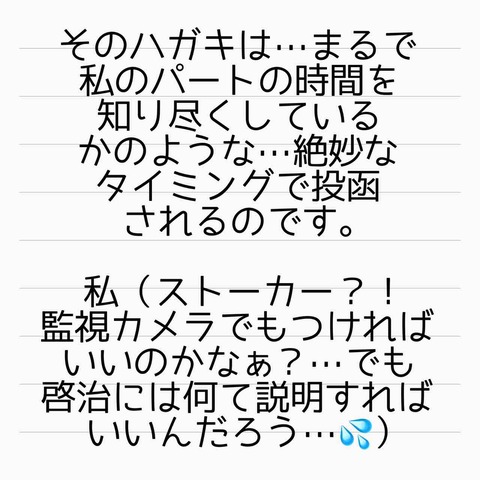 そのハガキは…まるで
私のパートの時間を
知り尽くしている
かのような…絶妙な
タイミングで投函
されるのです。
私（ストーカー？！
監視カメラでもつければ
いいのかなぁ？…でも
啓治には何て説明すれば
いいんだろう…💦）